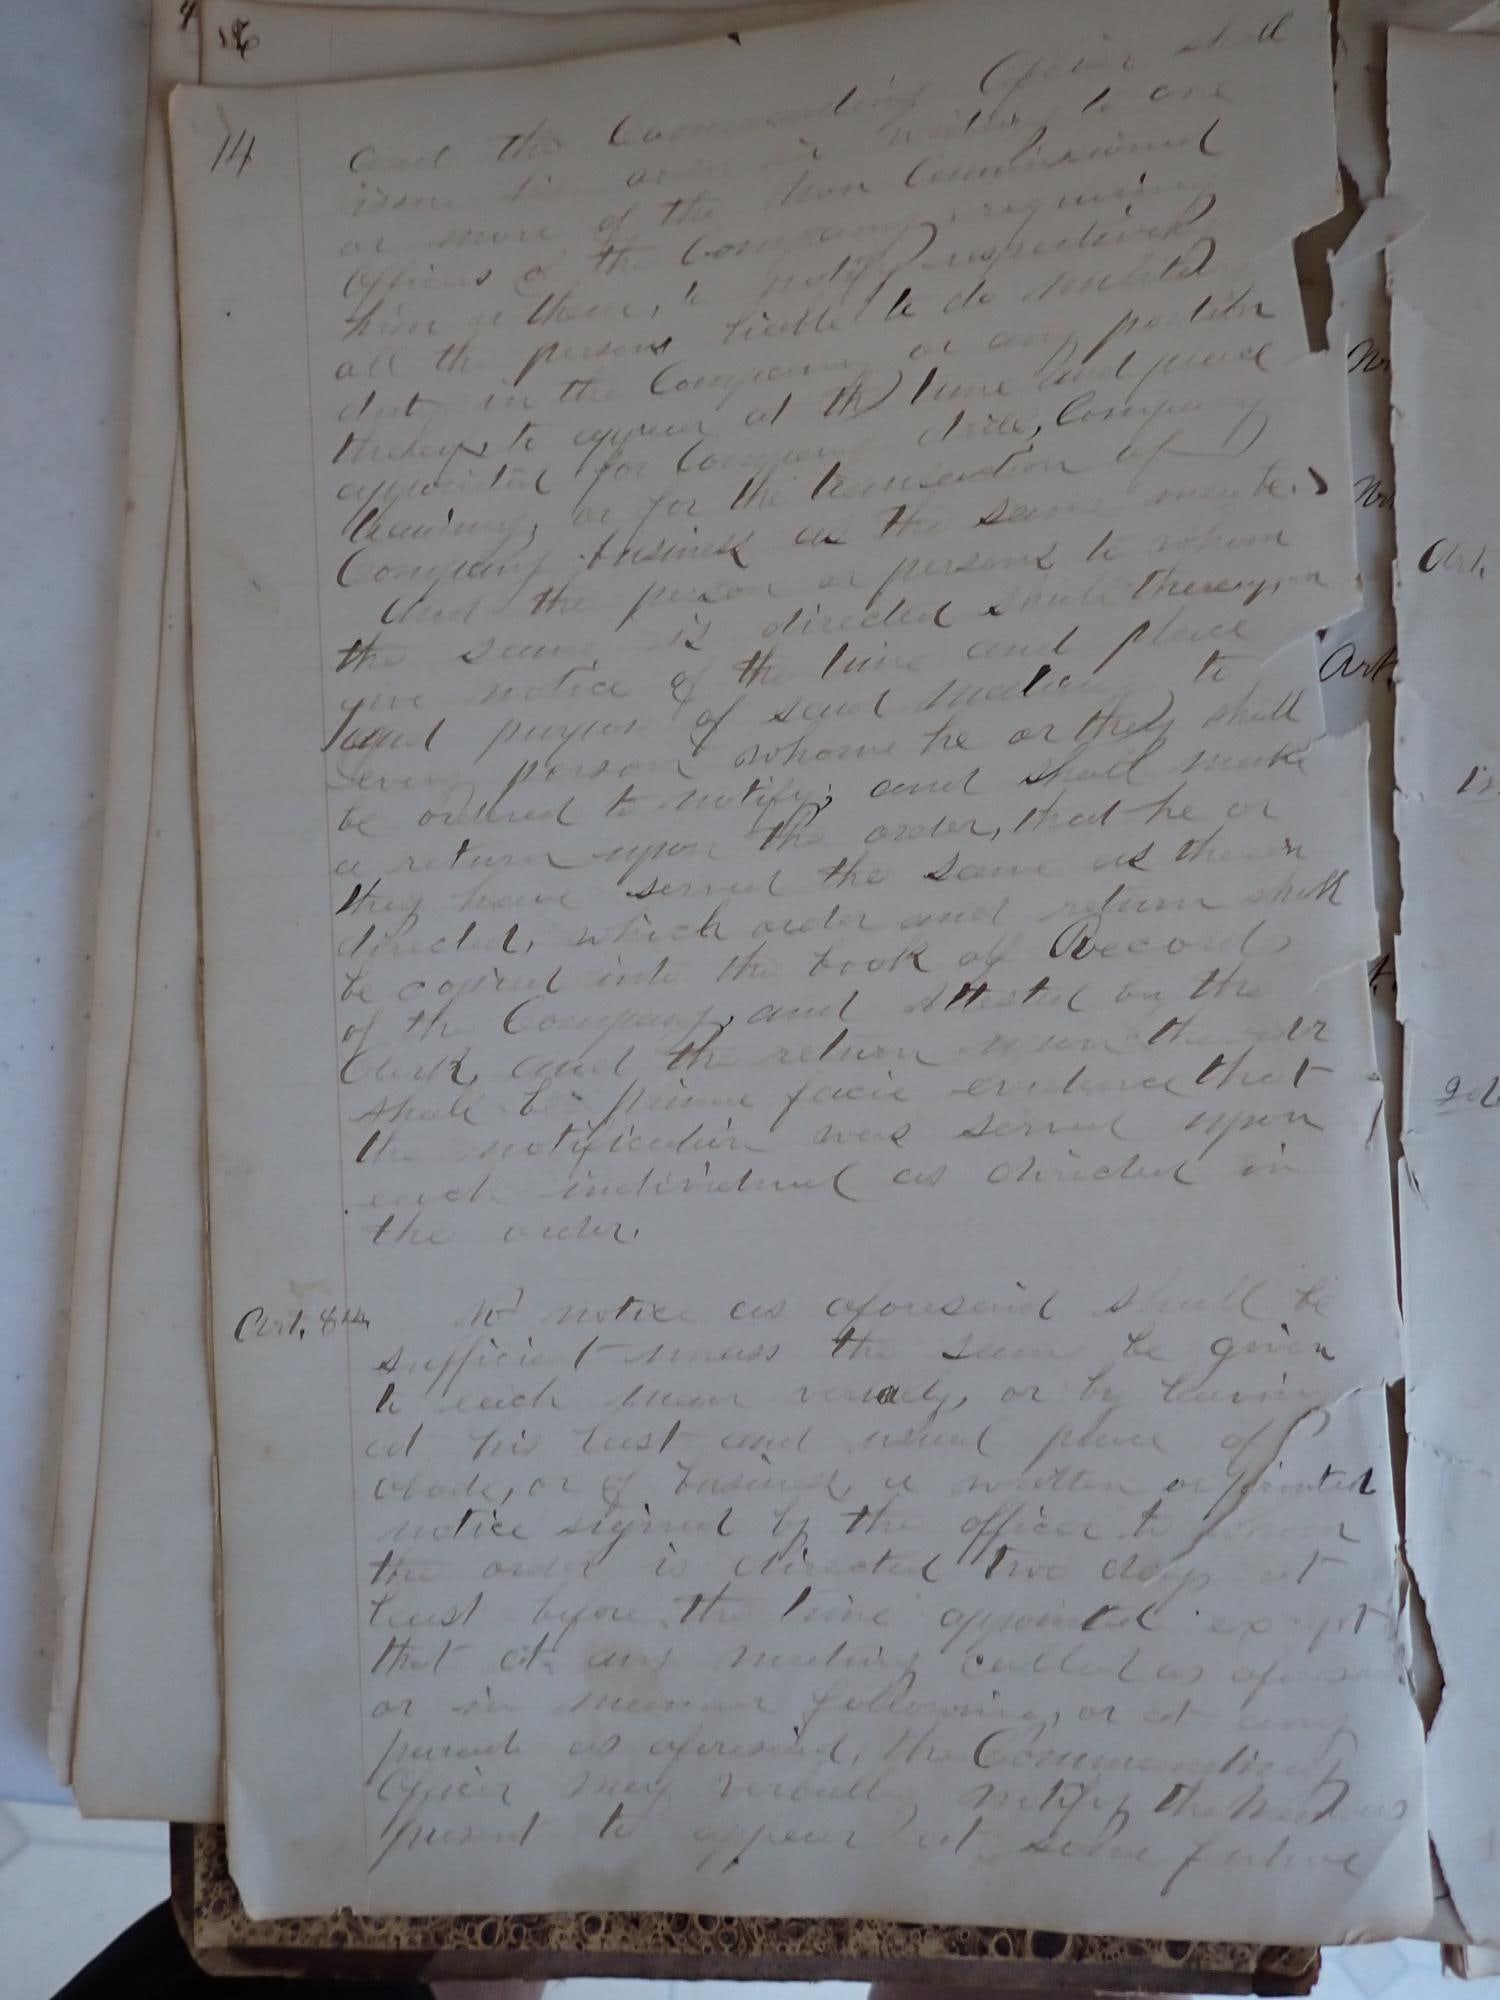 4
16
14
and the Commanding Officer shall
issue his order in writing to one
or more of the Non Commissioned
Officers of the Company, requiring
him or them, to notify respectively
all the persons liable to do military
duty in the Company or any portion
thereof to appear at the time and place
appointed for Company drill, Company
training, or for the transaction of
Company business as the same may be.
And the person or persons to whom
the same is directed shall thereupon
give notice of the time and place
and purpose of said meeting to
every person whome he or they shall
be ordered to notify; and shall make
a return upon the order, that he or
they have served the same as therein
directed, which order and return shall
be copied into the book of Records
of the Company, and Attested by the
Clerk, and the return upon the
shall be prima facie evidence that
the notification was served upon
each individual as directed in
the order.
Art. 8th No notice as aforesaid shall be
sufficient unless the same be given
to each man verbally, or by leaving
at his last and usual place of
abode, or of business, a written or printed
notice signed by the officer to whom
the order is directed two days at
least before the time appointed except
that at any meeting called as aforesaid
or in manner following, or at any
parade as aforesaid, the Commanding
Officer may verbally notify the Members
present to appear at some future
Art.
Art.
1st
2d